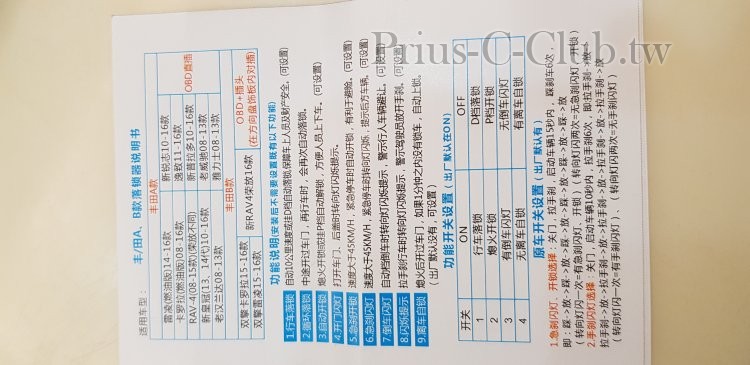 Prius-C-Club.tw
丰/田A、B款落锁器说明书
适用车型：
丰田A款
OBD直插
雷凌(燃油版)14-16款
新锐志10-16款
卡罗拉(燃油版)08-16款
逸致11-16款
RAV-4(08-15款)(荣放不同)
新普拉多10-16款
新皇冠(13、14代)10-16款
老威驰08-13款
老汉兰达08-13款
雅力士08-13款
丰田B款
OBD+插头
(在方向盘饰板内对插)
双擎卡罗拉15-16款
新RAV4荣放16款
双擎雷凌15-16款
功能说明(安装后不需要设置既有以下功能)
1.行车落锁
自动10公里速度或挂D档自动落锁,保障车上人员及财产安全。(可设置)
2.循环落锁
中途开过车门，再行车时，会再次自动落锁。
3.自动开锁
熄火开锁或挂P档自动解锁，方便人员上下车。(可设置)
4.开门闪灯
打开车门、后盖时转向灯闪烁提示。
5.急刹开锁
速度大于45KM/H，紧急停车时自动开锁，有利于避险。(可设置)
6.急刹闪灯
速度大于45KM/H，紧急停车时转向灯闪烁，提示后方车辆。(可设置)
7.倒车闪灯
自动档倒车时转向灯闪烁提示，警示行人车辆避让。(可设置)
8.闪烁提示
拉手刹行车时转向灯闪烁提示，警示驾驶员放开手刹。(可设置)
9.离车自锁
熄火后开过车门，如果1分钟之内没有锁车，自动上锁。
(出厂默认没有，可设置)
功能开关设置(出厂默认在ON)
开关 ON OFF
1 行车落锁 D档落锁
2 熄火开锁 P档开锁
3 有倒车闪灯 无倒车闪灯
4 无离车自锁 有离车自锁
原车开关设置(出厂默认有)
1.急刹闪灯、开锁选择：关门，拉手刹，启动车辆15秒内，踩刹车6次，
即：踩->放->踩->放->踩->放->踩->放->踩->放->踩->放
(转向灯闪一次=有急刹闪灯、开锁)(转向灯闪两次=无急刹闪灯、开锁)
2.手刹闪灯选择：关门，启动车辆10秒内，拉手刹6次，即拉手刹->放->
拉手刹->放->拉手刹->放->拉手刹->放->拉手刹->放->拉手刹->放
(转向灯闪一次=有手刹闪灯)、(转向灯闪两次=无手刹闪灯)